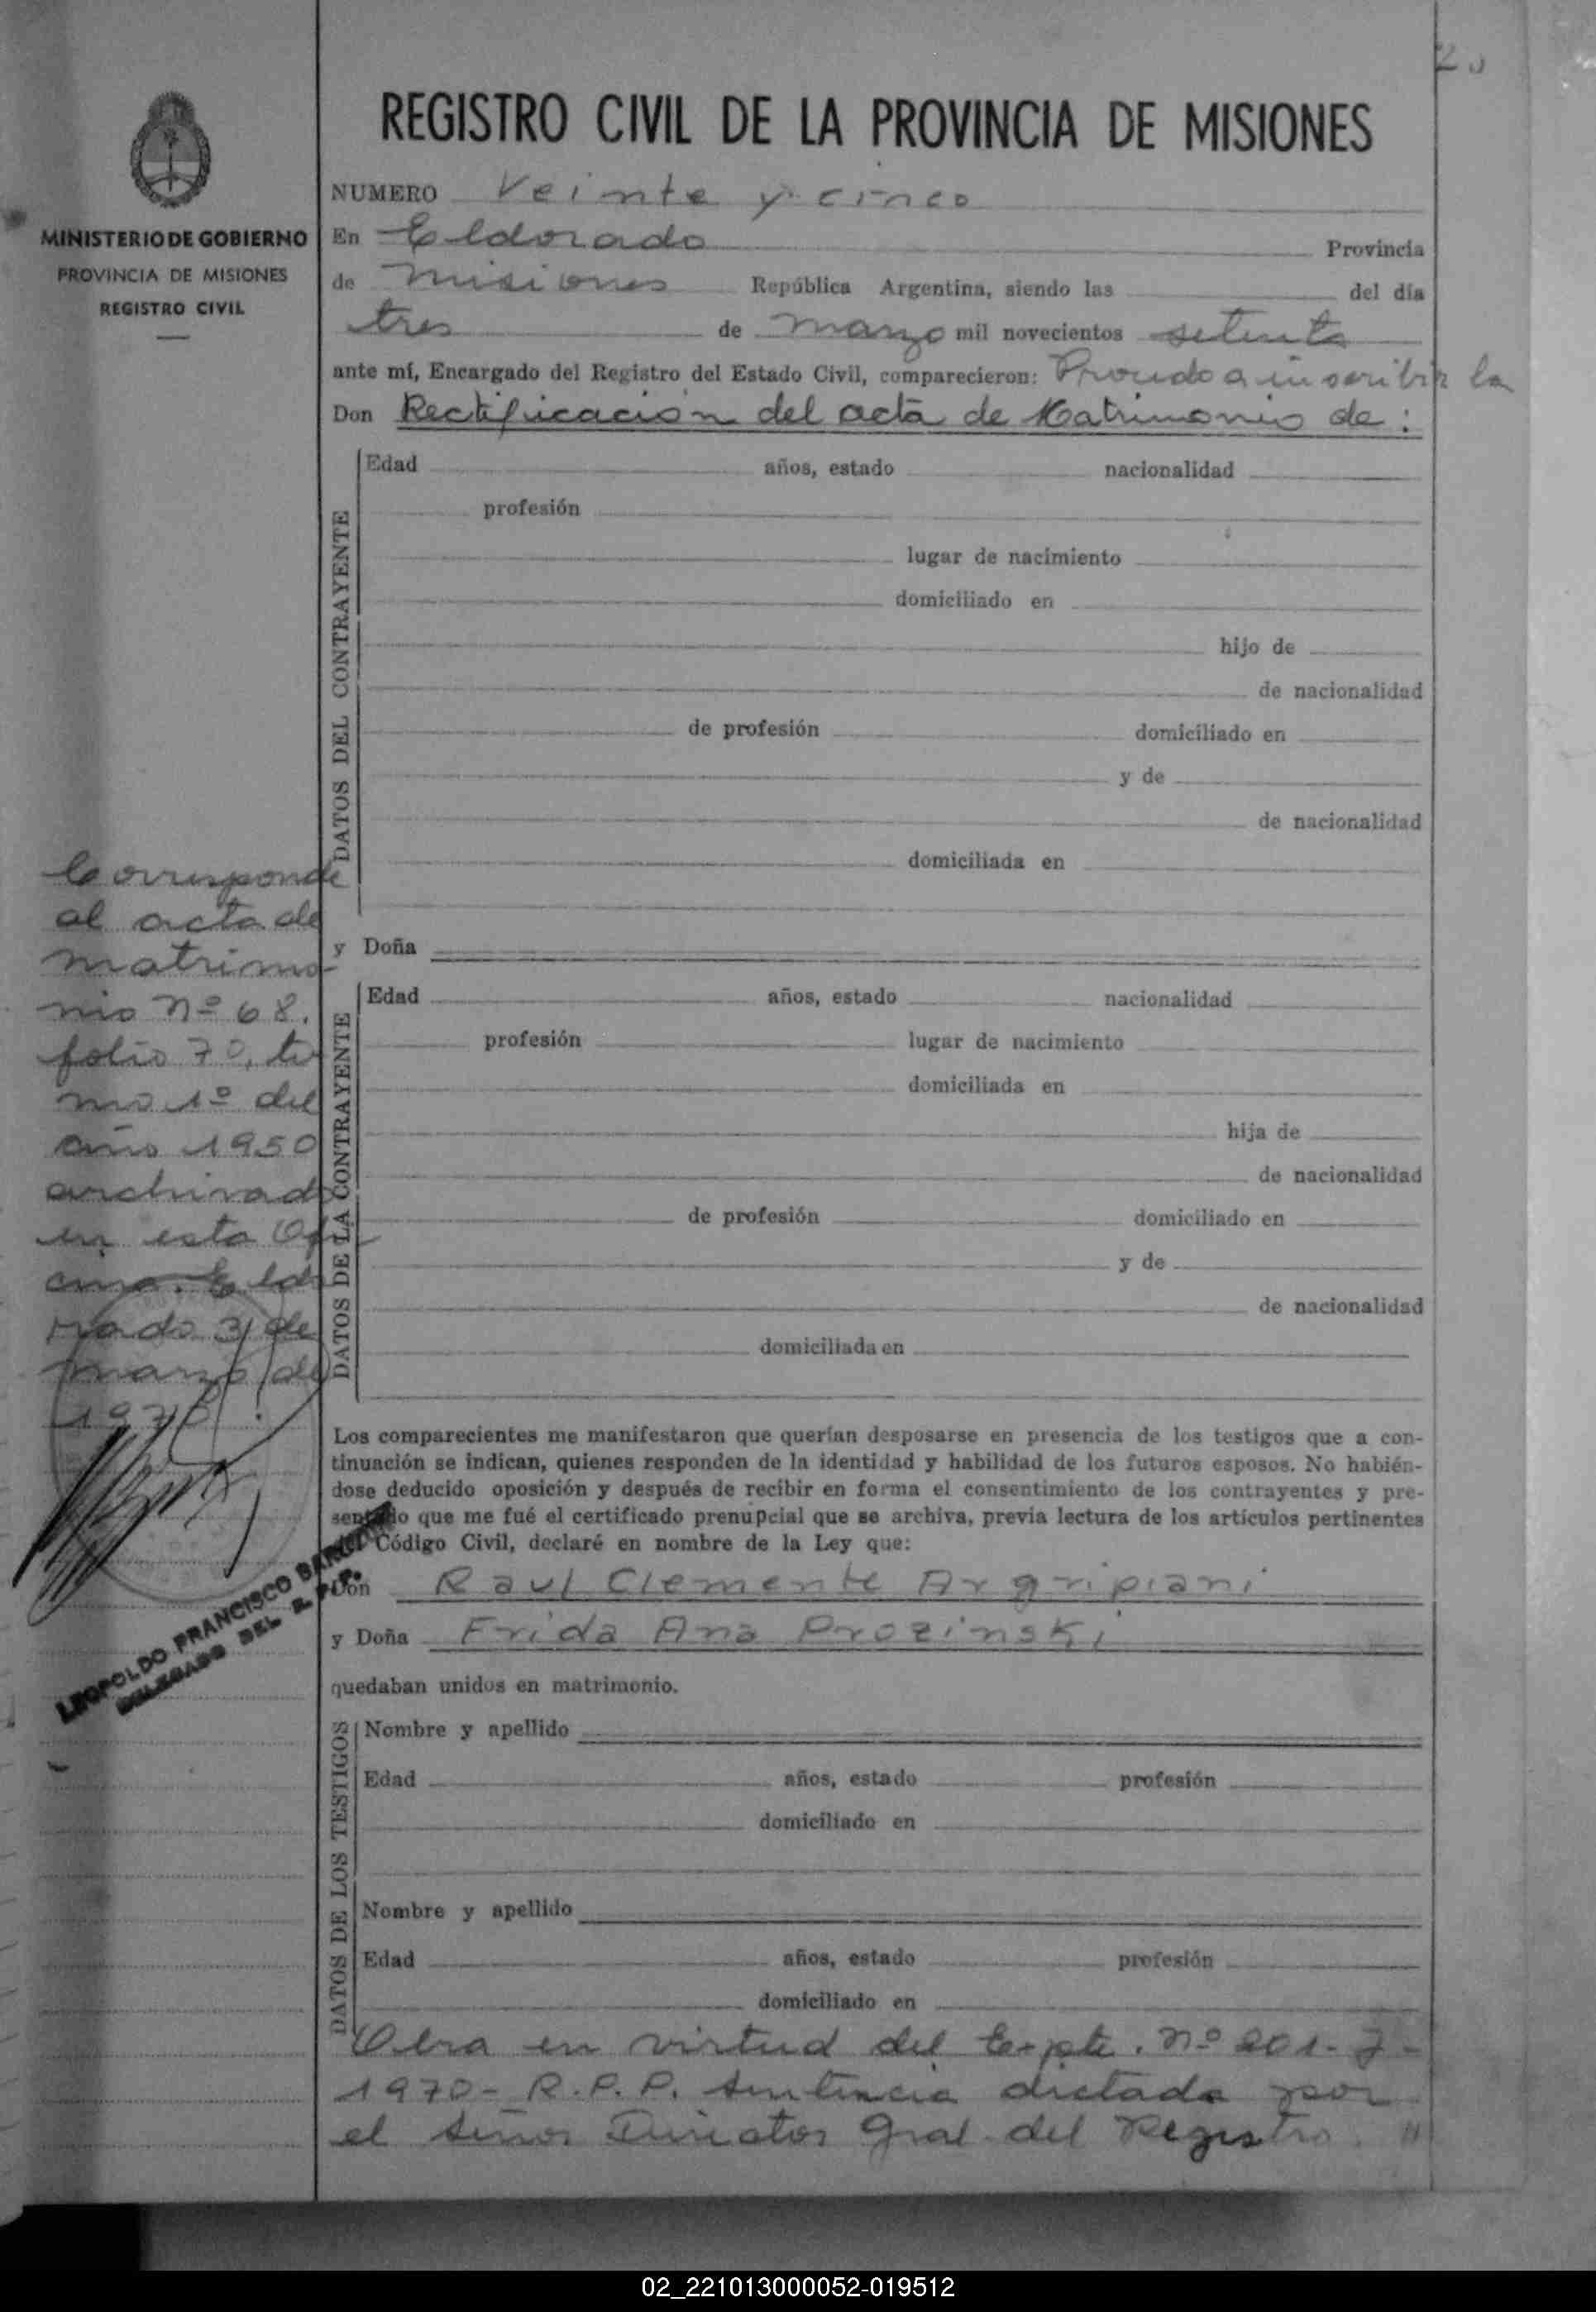 REGISTRO CIVIL DE LA PROVINCIA DE MISIONES
MINISTERIO DE GOBIERNO
PROVINCIA DE MISIONES
REGISTRO CIVIL
NUMERO Veinte y cinco
En Eldorado Provincia
de Misiones República Argentina, siendo las del día
tres de marzo mil novecientos setenta
ante mí, Encargado del Registro del Estado Civil, comparecieron: Procedo a inscribir la
Don Rectificación del acta de Matrimonio de:
DATOS DEL CONTRAYENTE
Edad años, estado nacionalidad
profesión
lugar de nacimiento
domiciliado en
hijo de
de nacionalidad
de profesión domiciliado en
y de
de nacionalidad
domiciliada en
y Doña
DATOS DE LA CONTRAYENTE
Edad años, estado nacionalidad
profesión lugar de nacimiento
domiciliada en
hija de
de nacionalidad
de profesión domiciliado en
y de
de nacionalidad
domiciliada en
Corresponde
al acta de
matrimo-
nio nº 68.
folio 70, to
mo 1º del
año 1950
archivado
en esta Ofi
cina. Eldo
rado 3 de
marzo de
1970.
LEOPOLDO FRANCISCO
DELEGADO DEL R. P. P.
Los comparecientes me manifestaron que querían desposarse en presencia de los testigos que a con-
tinuación se indican, quienes responden de la identidad y habilidad de los futuros esposos. No habién-
dose deducido oposición y después de recibir en forma el consentimiento de los contrayentes y pre-
sentado que me fué el certificado prenupcial que se archiva, previa lectura de los artículos pertinentes
del Código Civil, declaré en nombre de la Ley que:
Don Raul Clemente Argripiani
y Doña Frida Ana Prozinski
quedaban unidos en matrimonio.
DATOS DE LOS TESTIGOS
Nombre y apellido
Edad años, estado profesión
domiciliado en
Nombre y apellido
Edad años, estado profesión
domiciliado en
Obra en virtud del Expte. nº 201-J-
1970- R.P.P. sentencia dictada por
el señor Director Gral del Registro. "
02_221013000052-019512